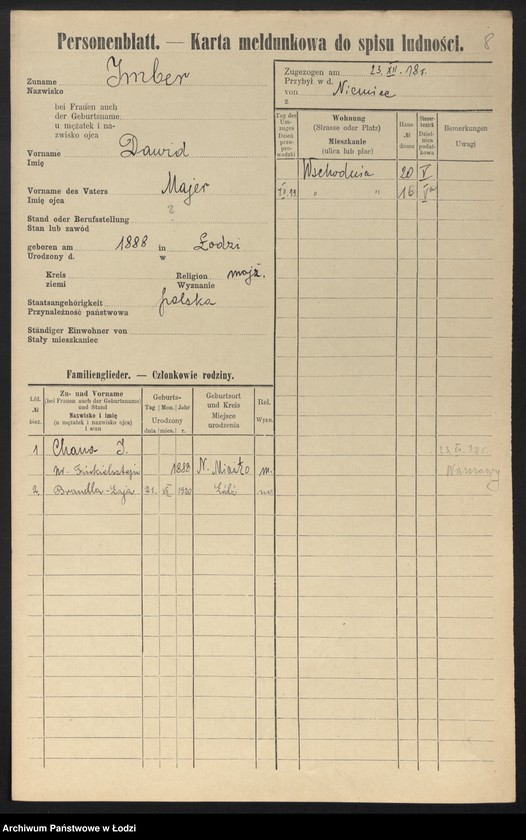 Personenblatt. — Karta meldunkowa do spisu ludności.
8
Zuname Imber
Nazwisko
bei Frauen auch
der Geburtsname
u mężatek i na-
zwisko ojca
Vorname Dawid
Imię
Vorname des Vaters Majer
Imię ojca
Stand oder Berufsstellung ?
Stan lub zawód
geboren am 1888 in Łodzi
Urodzony d. w
Kreis Religion mojż.
ziemi Wyznanie
Staatsangehörigkeit polska
Przynależność państwowa
Ständiger Einwohner von
Stały mieszkaniec
Zugezogen am 23. XII. 18 r.
Przybył w d.
von Niemiec
z
Tag des Um-zuges Dzień prze-pro-wadzki
Wohnung
(Strasse oder Platz)
Mieszkanie
(ulica lub plac)
Haus № domu
Steuer-bezirk Dzielnica podat-kowa
Bemerkungen
Uwagi
Wschodnia 20 V
" " 16 V
Familienglieder. — Członkowie rodziny.
Lfd. № bież.
Zu- und Vorname
(bei Frauen auch der Geburtsname)
und Stand
Nazwisko i imię
(u mężatek i nazwisko ojca)
i stan
Geburts-
Tag Mon. Jahr
Urodzony
dnia mies. r.
Geburtsort
und Kreis
Miejsce
urodzenia
Rel.
Wyzn.
1 Chana I.
1888 N. Miasto m.
23. XII. 18 r.
Warszawy
2 Brandla-Łaja 21. 1920 Łódź m.
Archiwum Państwowe w Łodzi